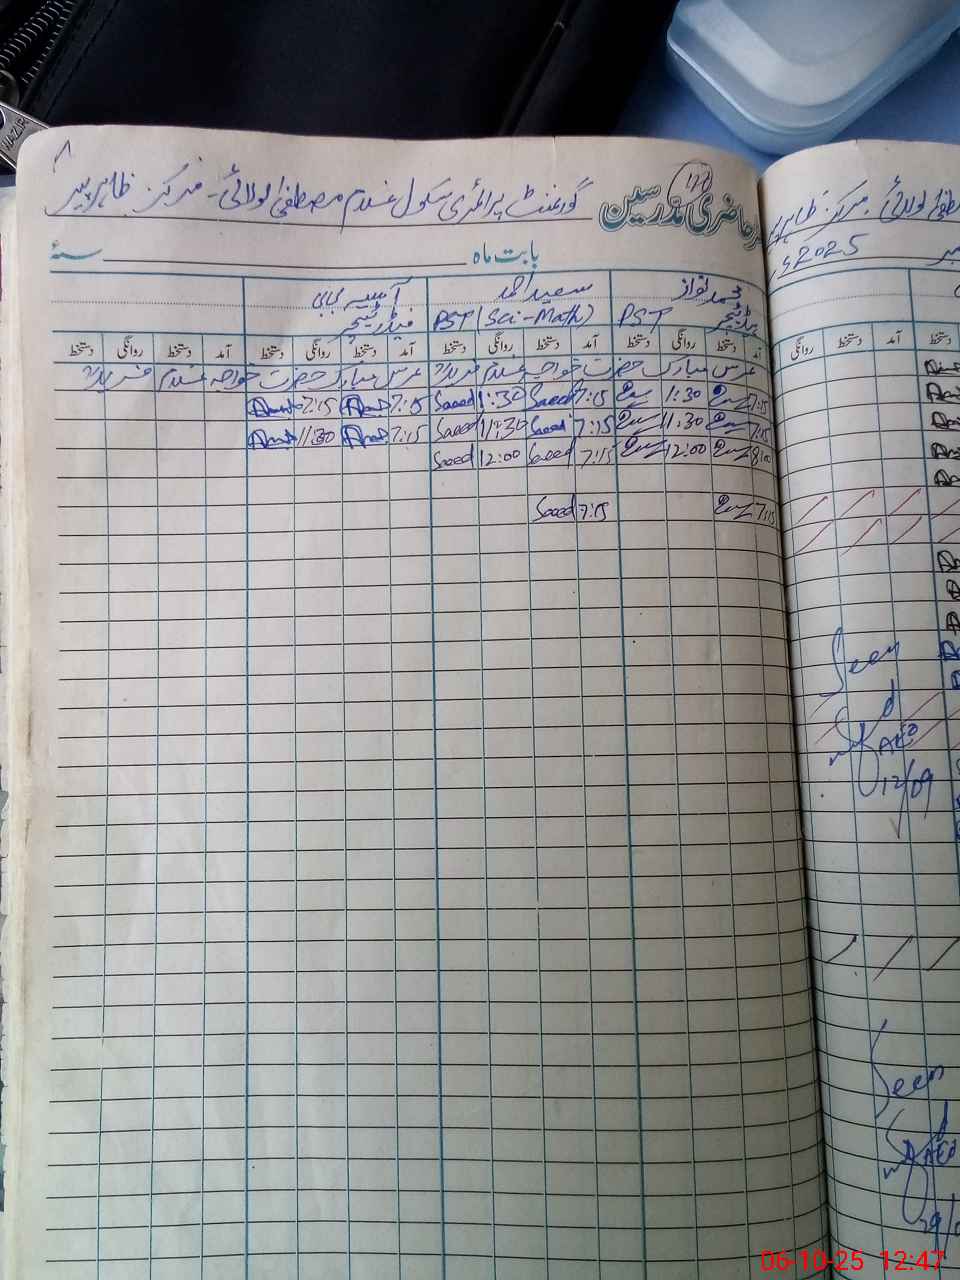 رجسٹر حاضری مدرسین گورنمنٹ پرائمری سکول غلام مصطفیٰ لولائی۔ مرکز ظاہر پیر
بابت ماہ سنۂ
محمد نواز سعید احمد آسیہ بی بی
ہیڈ ٹیچر PST PST (Sci-Math)
آمد دستخط روانگی دستخط آمد دستخط روانگی دستخط آمد دستخط روانگی دستخط آمد دستخط روانگی دستخط
عرس مبارک حضرت خواجہ غلام فرید عرس مبارک حضرت خواجہ غلام فرید
7:15 1:30 7:15 Saeed 1:30 Saeed 7:15 7:15
7:15 11:30 7:15 Saeed 11:30 Saeed 7:15 11:30
8:00 12:00 7:15 Saeed 12:00 Saeed
7:15 7:15 Saeed
2025
دستخط آمد دستخط روانگی
Seen
AEO
12/09
Seen
AEO
NAZIR
06-10-25 12:47